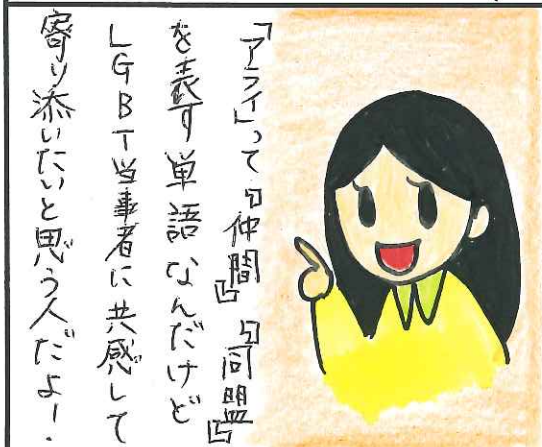 「アライ」って『仲間』『同盟』
を表す単語なんだけど
LGBT当事者に共感して
寄り添いたいと思う人だよ!.